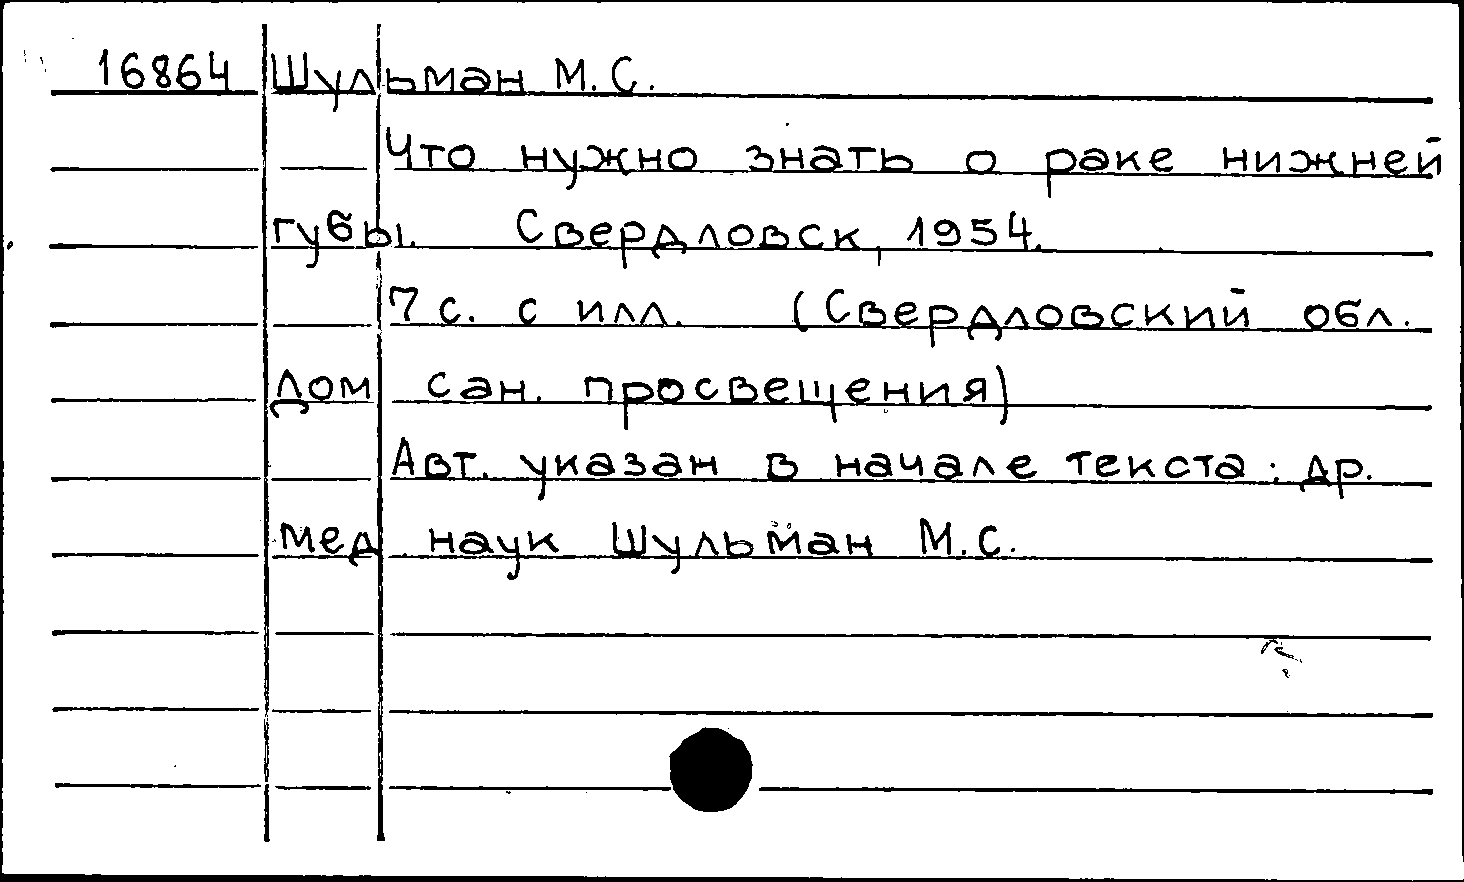 16864 Шульман М.С.
Что нужно знать о раке нижней
губы. Свердловск, 1954.
7 с. с илл. (Свердловский обл.
дом сан. просвещения)
Авт. указан в начале текста: др.
мед наук Шульман М.С.